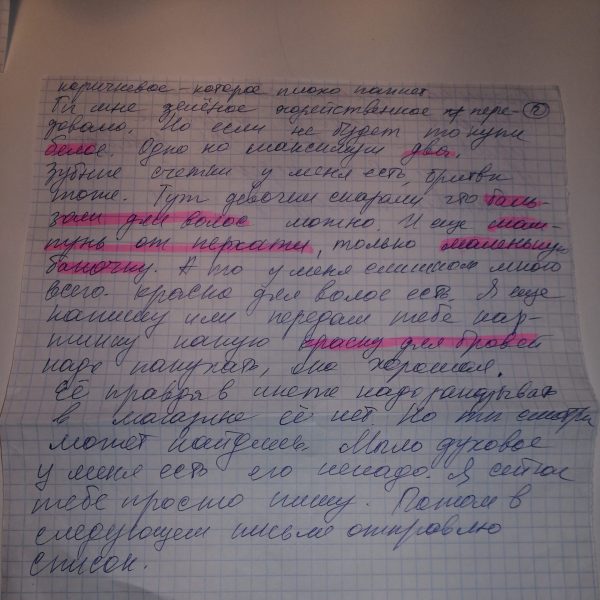 коричневое – которое плохо пахнет.
Ты мне зелёное хозяйственное пере- 2
довала. Но если не будет то купи
белое. Одно но максимум два.
Зубные щетки у меня есть, бритвы
тоже. Тут девочки сказали, что баль-
зам для волос можно. И еще шам-
пунь от перхоти, только маленькую
баночку. А то у меня слишком много
всего. Краска для волос есть. Я еще
напишу или передам тебе кар-
тинку какую краску для бровей
надо покупать, она хорошая.
Её правда в инете надо заказывать
в магазине её нет Но ты смотри
может найдешь. Мыло духовое
у меня есть его ненадо. Я сейчас
тебе просто пишу. Потом в
следующем письме отправлю
список.